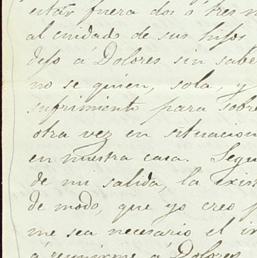 estar fuera dos ó tres
al cuidado de sus hijos
dejo á Dolores sin sabe
no se quien, sola, y
suprimento para sobre
otra vez en situacion
en nuestra casa. Segu
de mi salida, la exis
de modo, que yo creo
me sea necesario el i
á reunirme á Dolores